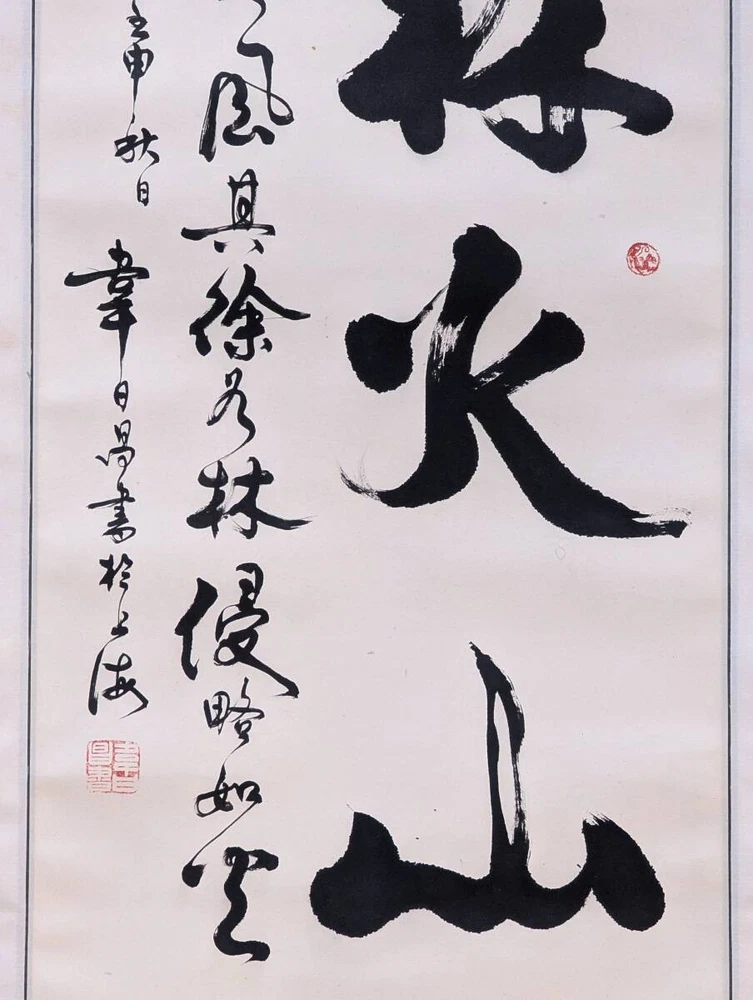 林火山
風其徐如林侵略如火
壬申秋日韋日昌書於上海